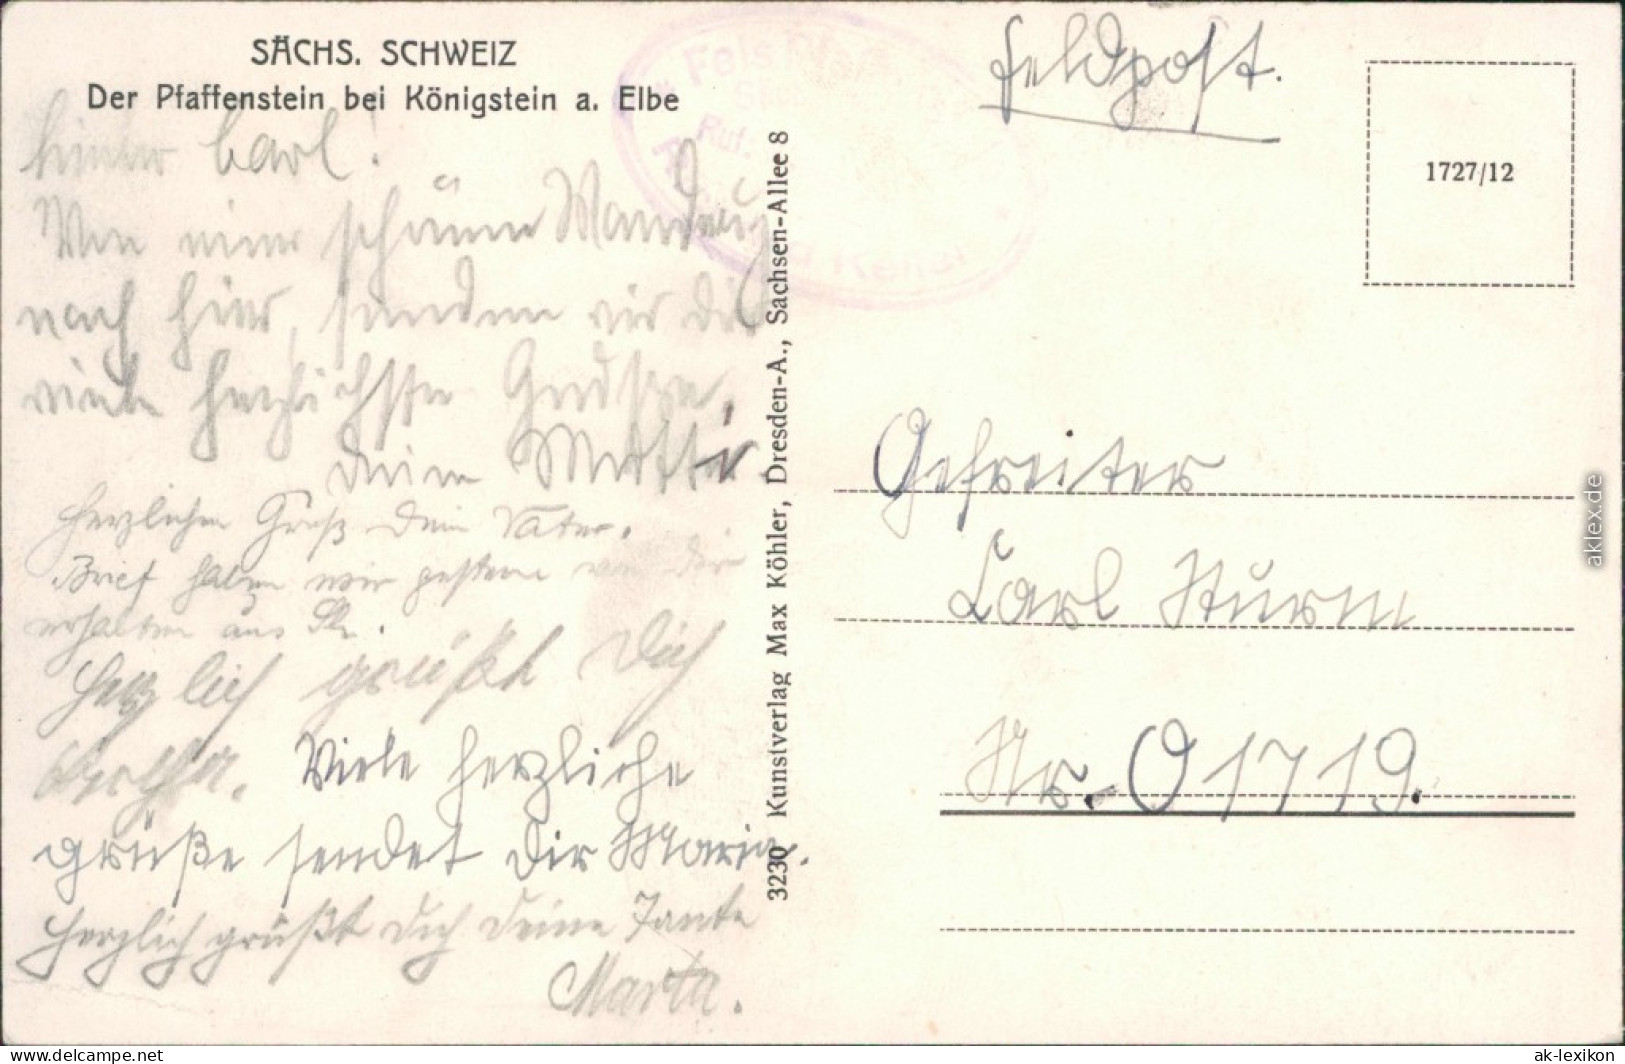 SÄCHS. SCHWEIZ
Der Pfaffenstein bei Königstein a. Elbe
Lieber Carl!
Von einer schönen Wanderung
nach hier, senden wir dir
viele herzlichste Grüsse,
deine Mutter
Herzlichen Gruß Dein Vater.
Brief haben wir gestern von Dir
erhalten aus
Herzlich grüßt Dich
Viele herzliche
grüße sendet dir Maria.
Herzlich grüßt Dich Deine Tante
Marta.
3230 Kunstverlag Max Köhler, Dresden-A., Sachsen-Allee 8
Fels
Ruf:
Keller
Feldpost.
1727/12
Gefreiter
Carl Sturm
Nr.-01719.
aklex.de
www.delcampe.net
ak-lexikon